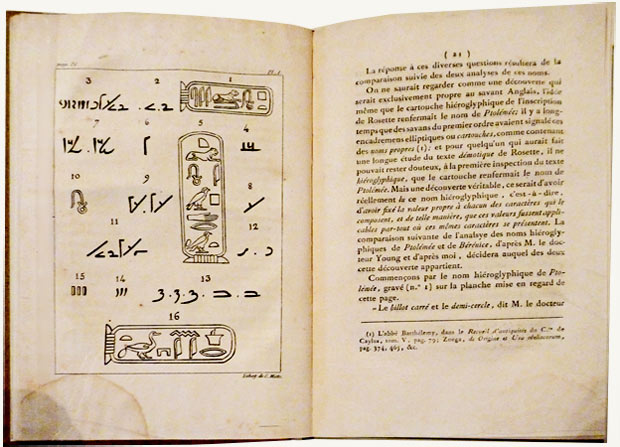 Pl. 1
3
2
1
7
6
5
4
10
9
8
11
12
15
14
13
16
( 21 )
La réponse à ces diverses questions résultera de la
comparaison suivie des deux analyses de ces noms.
On ne saurait regarder comme une découverte qui
serait exclusivement propre au savant Anglais, l'idée
même que le cartouche hiéroglyphique de l'inscription
de Rosette renfermait le nom de Ptolémée; il y a long-
temps que des savans du premier ordre avaient signalé ces
encadremens elliptiques ou cartouches, comme contenant
des noms propres (1); et pour quelqu'un qui aurait fait
une longue étude du texte démotique de Rosette, il ne
pouvait rester douteux, à la première inspection du texte
hiéroglyphique, que le cartouche renfermait le nom de
Ptolémée. Mais une découverte véritable, ce serait d'avoir
réellement lu ce nom hiéroglyphique, c'est-à-dire,
d'avoir fixé la valeur propre à chacun des caractères qui le
composent, et de telle manière, que ces valeurs fussent appli-
cables par-tout où ces mêmes caractères se présentent. La
comparaison suivante de l'analyse des noms hiérogly-
phiques de Ptolémée et de Bérénice, d'après M. le doc-
teur Young et d'après moi, décidera auquel des deux
cette découverte appartient.
Commençons par le nom hiéroglyphique de Pto-
lémée, gravé (n.° 1) sur la planche mise en regard de
cette page.
-Le billot carré et le demi-cercle, dit M. le docteur
(1) L'abbé Barthélemy, dans le Recueil d'antiquités du C.te de
Caylus, tom. V, pag. 79; Zoega, de Origine et Usu obeliscorum,
pag. 374, 465, &c.